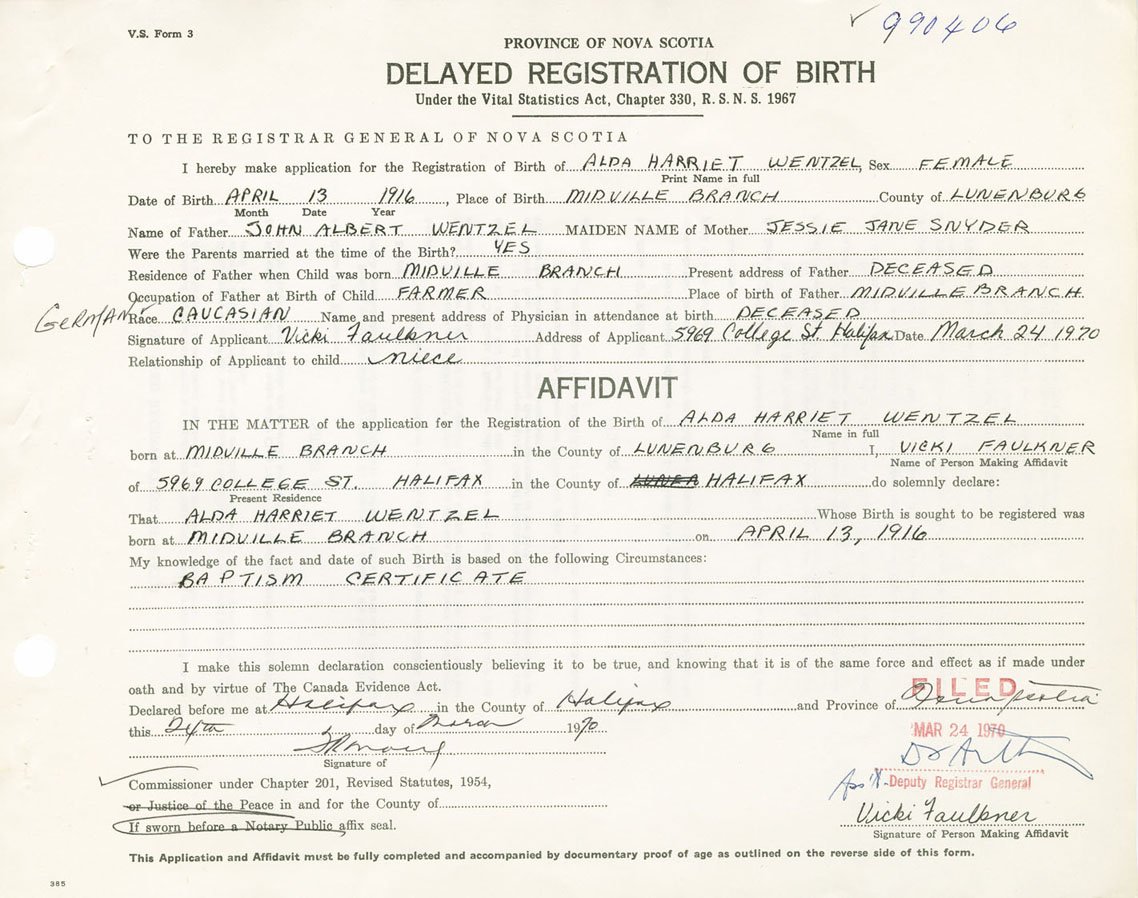 V.S. Form 3
990406
PROVINCE OF NOVA SCOTIA
DELAYED REGISTRATION OF BIRTH
Under the Vital Statistics Act, Chapter 330, R.S.N.S. 1967
TO THE REGISTRAR GENERAL OF NOVA SCOTIA
I hereby make application for the Registration of Birth of ALDA HARRIET WENTZEL, Sex FEMALE
Print Name in full
Date of Birth APRIL 13 1916, Place of Birth MIDVILLE BRANCH County of LUNENBURG
Month Date Year
Name of Father JOHN ALBERT WENTZEL MAIDEN NAME of Mother JESSIE JANE SNYDER
Were the Parents married at the time of the Birth? YES
Residence of Father when Child was born MIDVILLE BRANCH Present address of Father DECEASED
Occupation of Father at Birth of Child FARMER Place of birth of Father MIDVILLE BRANCH
GERMAN Race CAUCASIAN Name and present address of Physician in attendance at birth DECEASED
Signature of Applicant Vicki Faulkner Address of Applicant 5969 College St. Halifax Date March 24 1970
Relationship of Applicant to child niece
AFFIDAVIT
IN THE MATTER of the application for the Registration of the Birth of ALDA HARRIET WENTZEL
Name in full
born at MIDVILLE BRANCH in the County of LUNENBURG I, VICKI FAULKNER
Name of Person Making Affidavit
of 5969 COLLEGE ST. HALIFAX in the County of HALIFAX do solemnly declare:
Present Residence
That ALDA HARRIET WENTZEL Whose Birth is sought to be registered was
born at MIDVILLE BRANCH on APRIL 13, 1916
My knowledge of the fact and date of such Birth is based on the following Circumstances:
BAPTISM CERTIFICATE
I make this solemn declaration conscientiously believing it to be true, and knowing that it is of the same force and effect as if made under
oath and by virtue of The Canada Evidence Act.
FILED
Declared before me at Halifax in the County of Halifax and Province of Nova Scotia
this 24th day of March 1970
MAR 24 1970
Signature of
Commissioner under Chapter 201, Revised Statutes, 1954,
Ass't Deputy Registrar General
or Justice of the Peace in and for the County of
Vicki Faulkner
If sworn before a Notary Public affix seal.
Signature of Person Making Affidavit
This Application and Affidavit must be fully completed and accompanied by documentary proof of age as outlined on the reverse side of this form.
385